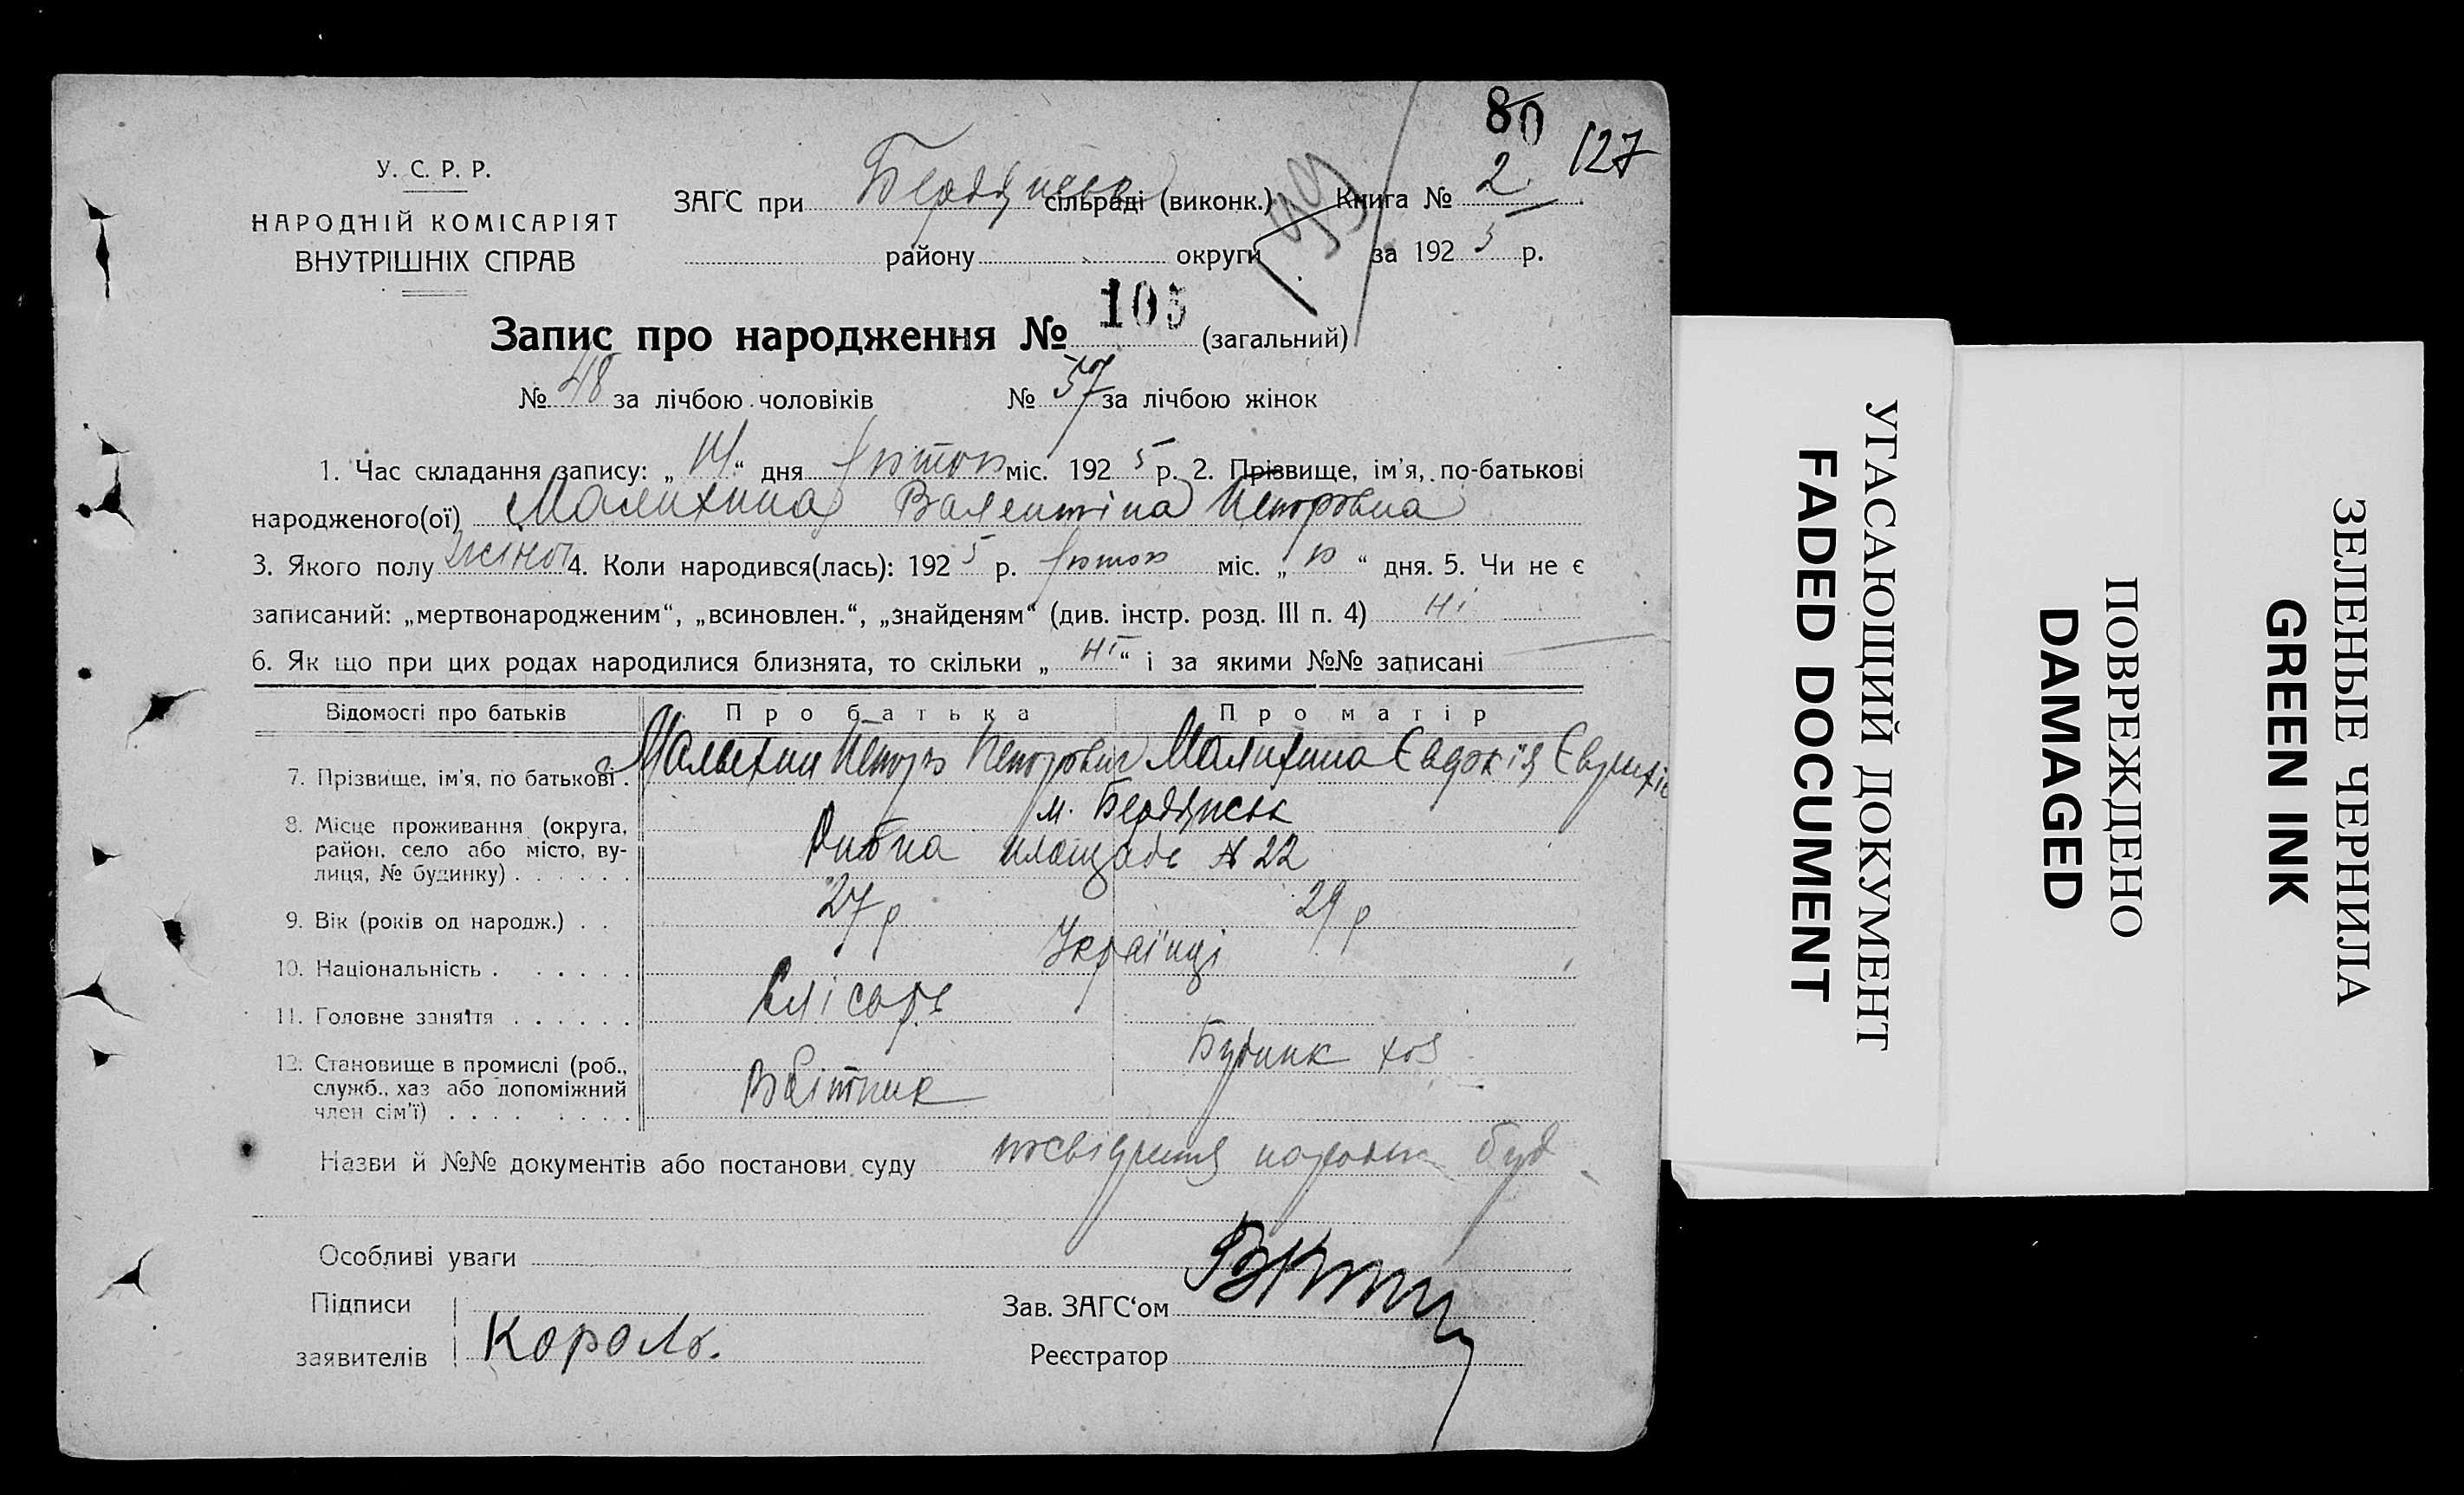 80
127
У. С. Р. Р.
НАРОДНІЙ КОМІСАРІЯТ
ВНУТРІШНІХ СПРАВ
ЗАГС при сільраді (виконк.) Книга № 2
району округи за 192 5 р.
99
Запис про народження № 105 (загальний)
№ 48 за лічбою чоловіків № 57 за лічбою жінок
1. Час складання запису: „ 14 “ дня міс. 192 5 р. 2. Прізвище, ім'я, по-батькові
народженого(ої) Малихина Валентіна
3. Якого полу жіноч 4. Коли народився(лась): 192 5 р. міс. „ “ дня. 5. Чи не є
записаний: „мертвонародженим“, „всиновлен.“, „знайденям“ (див. інстр. розд. III п. 4) ні
6. Як що при цих родах народилися близнята, то скільки „ ні “ і за якими №№ записані
Відомості про батьків Про батька Про матір
7. Прізвище, ім'я, по батькові . Малыхин Малихина Євдокія
8. Місце проживання (округа, м. Бердянськ
район, село або місто, ву- площадь № 22
лиця, № будинку) . . . . . .
9. Вік (років од народж.) . . 27 р 29 р
10. Національність . . . . . . Українці
11. Головне заняття . . . . . . Слісарь
12. Становище в промислі (роб., Будинк хоз
служб., хаз або допоміжний
член сім'ї) . . . . . . . .
Назви й №№ документів або постанови суду посвідчення буд
Особливі уваги
Підписи Зав. ЗАГС‘ом
заявителів Король. Реєстратор
УГАСАЮЩИЙ ДОКУМЕНТ
FADED DOCUMENT
ПОВРЕЖДЕНО
DAMAGED
ЗЕЛЕНЫЕ ЧЕРНИЛА
GREEN INK